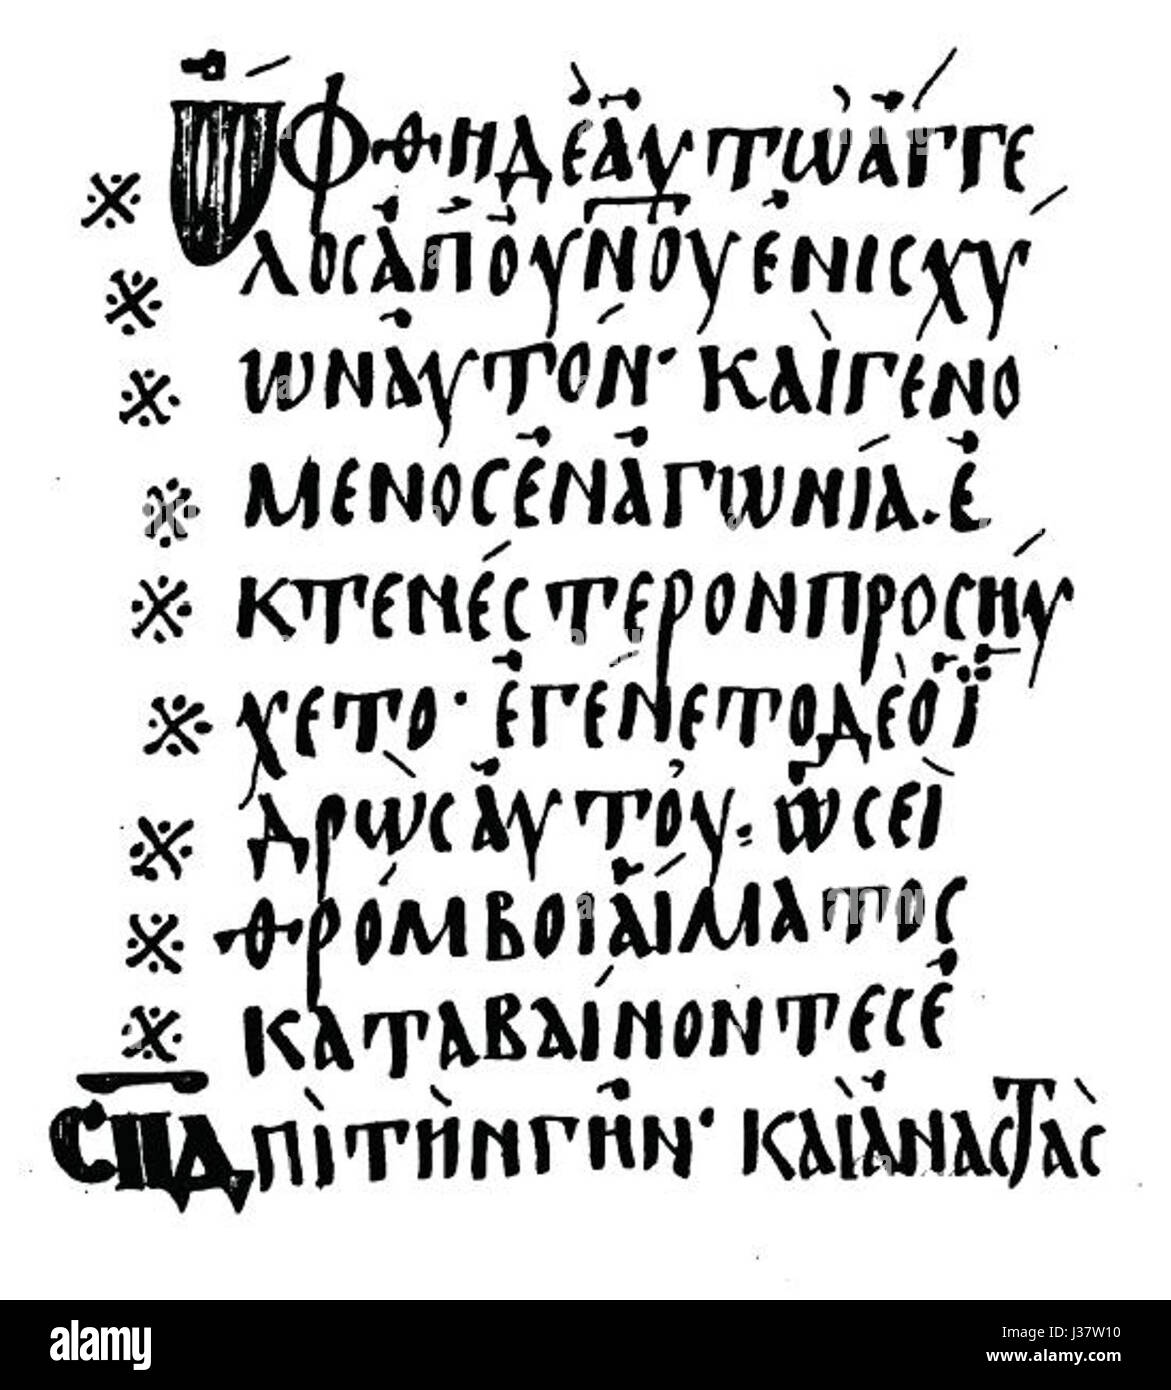 ὤφθη δὲ ἀυτῶ ἄγγε
λος ἀπὸ οὐνοῦ ἐνισχύ
ων ἀυτόν· καὶ γενό
μενος ἐν ἀγωνία. ἐ
κτενέστερον προσηύ
χετο· ἐγένετο δὲ ὁ ἱ
δρὼς ἀυτοῦ: ὡσεὶ
θρόμβοι ἁίματος
καταβαίνοντες ἐ
πὶ τὴν γῆν· καὶ ἀναστὰς
СПД
alamy
Image ID: J37W10
www.alamy.com